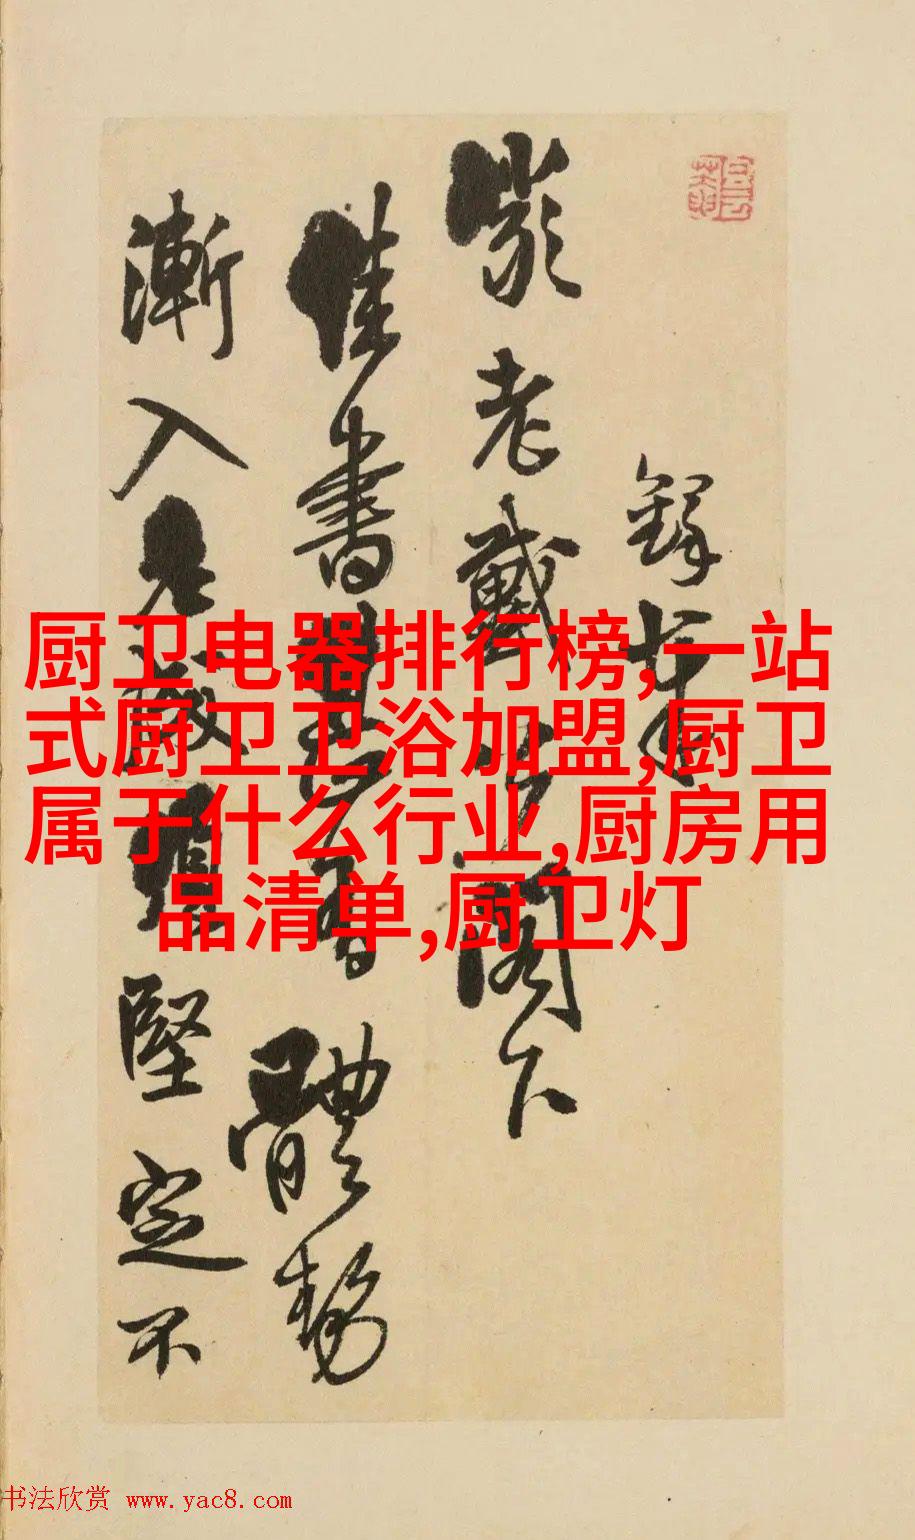 厨卫电器排行榜,一站
式厨卫卫浴加盟,厨卫
属于什么行业,厨房用
品清单,厨卫灯
鐸
老戴 閣下
佳書 體勢
漸入 堅定不
书法欣赏 www.yac8.com